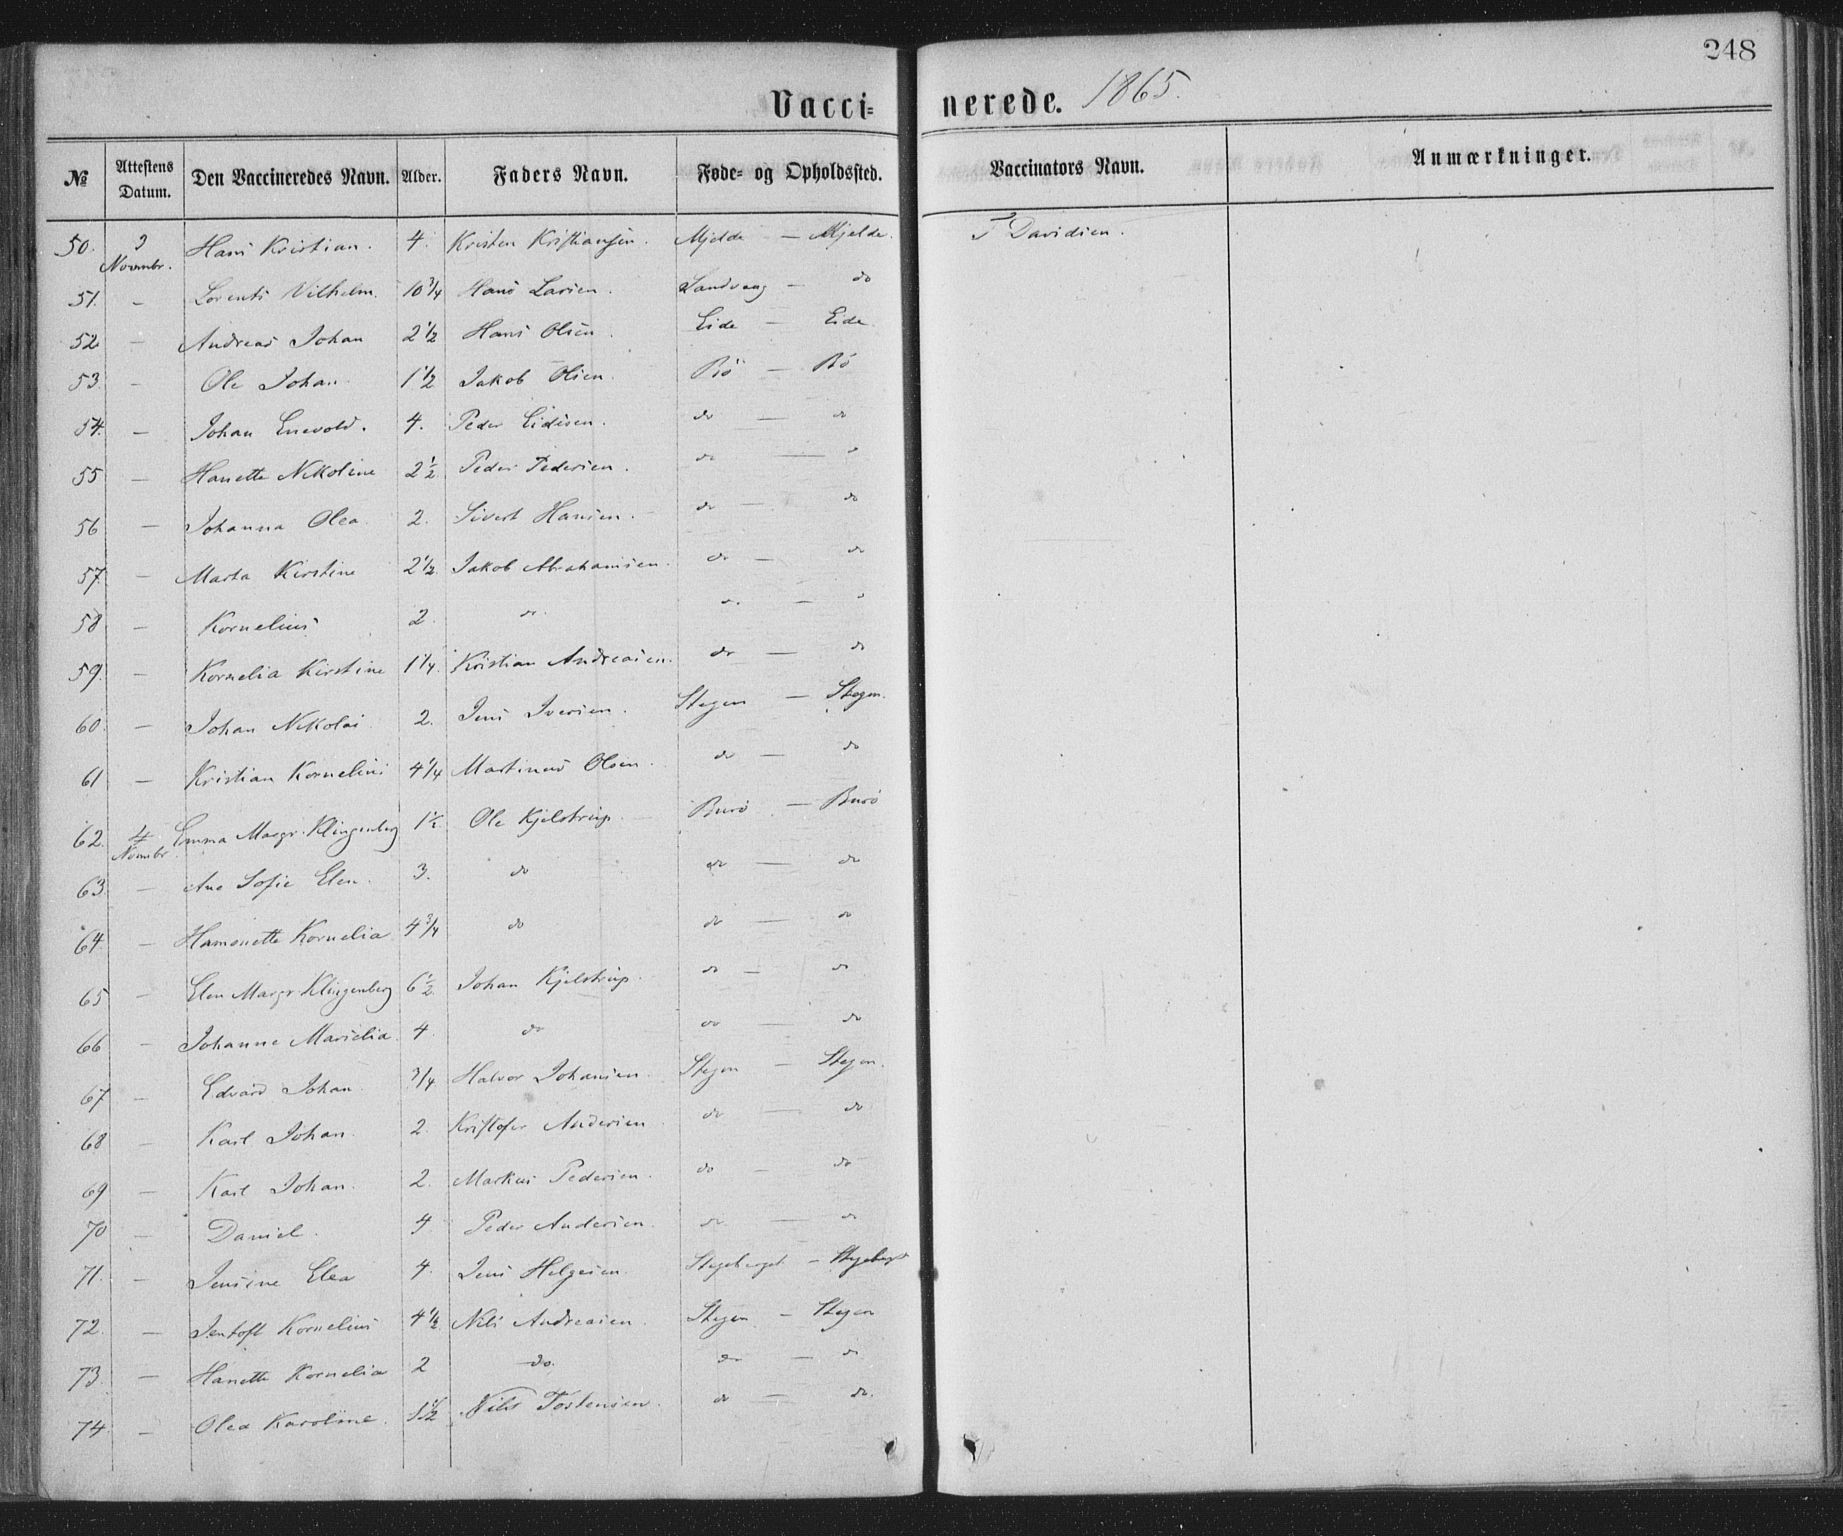 248
Vacci= nerede. 1865.
№ Attestens Datum. Den Vaccineredes Navn. Alder. Faders Navn. Føde- og Opholdssted. Vaccinators Navn. Anmærkninger.
50. 3 Novembr. Hans Kristian. 4. Kristen Kristiansen. Mjelde — Mjelde. Davidsen.
51. — Lorents Vilhelm. 10 3/4 Hans Larsen. — do
52 — Andreas Johan 2 1/2 Hans Olsen. Eide — Eide
53. — Ole Johan. 1 1/2 Jakob Olsen. Bö — Bö
54. — Johan Enevold. 4. Peder Eidisen. do — do
55 — Hanette Nikoline 2 1/2 Peder Pedersen. do — do
56 — Johanna Olea. 2. Sivert Hansen. do — do
57. — Marta Kirstine 2 1/2 Jakob Abrahamsen. do — do
58 — Kornelius 2. do. do — do
59. — Kornelia Kirstine 1 1/4. Kristian Andreasen. do — do
60. — Johan Nikolai 2. Jens Iversen. Stegen — Stegen.
61 — Kristian Kornelius 4 1/4 Martinus Olsen. do — do
62. 4 Novembr. Emma Margr. Klingenberg 1 1/2 Ole Kjelstrup. Burö — Burö
63. — Ane Sofie Elen. 3. do do — do
64. — Hamonette Kornelia 4 3/4 do do — do
65 — Elen Margr. Klingenberg 6 1/2 Johan Kjelstrup. do — do
66 — Johanne Marselia. 4. do do — do
67 — Edvard Johan. 3/4 Halvor Johansen. Stegen — Stegen.
68 — Karl Johan. 2. Kristofer Andersen do — do
69 — Karl Johan. 2. Markus Pedersen. do — do
70 — Daniel. 4 Peder Andersen. do — do
71. — Jensine Elea 4. Jens Helgesen. Stegeberget — Stegeberget
72. — Jentoft Kornelius 4 1/2 Nils Andreasen. Stegen — Stegen
73. — Hanette Kornelia 2 do. do — do
74 — Olea Karoline. Nils Tostensen. do — do.